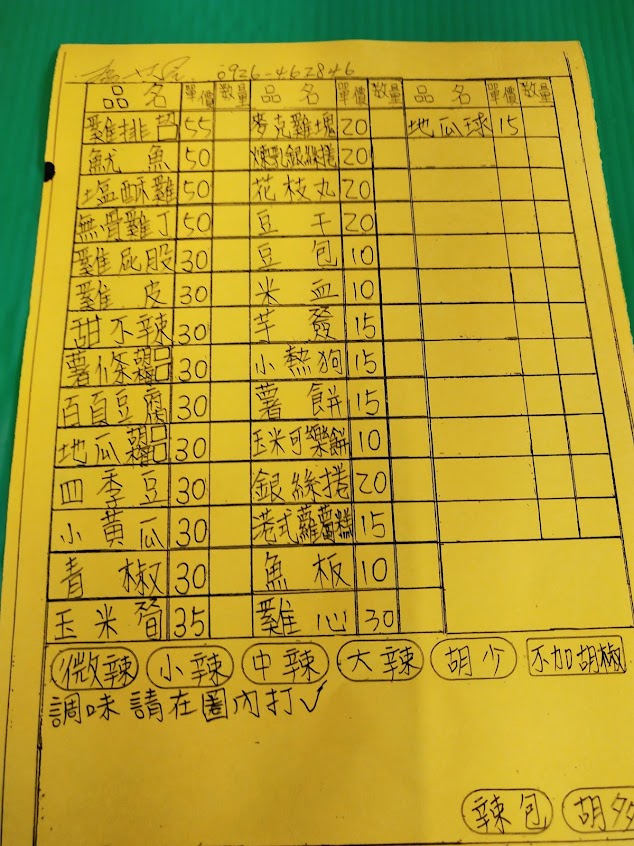 0926-462846
品名 單價 数量 品名 單價 数量 品名 單價 数量
雞排 55 麥克雞塊 20 地瓜球 15
魷魚 50 煉乳銀絲捲 20
塩酥雞 50 花枝丸 20
無骨雞丁 50 豆干 20
雞屁股 30 豆包 10
雞皮 30 米血 10
甜不辣 30 芋簽 15
薯條 胡 糖 30 小熱狗 15
百頁豆腐 30 薯餅 15
地瓜 胡 糖 30 玉米可樂餅 10
四季豆 30 銀絲捲 20
小黃瓜 30 港式蘿蔔糕 15
青椒 30 魚板 10
玉米筍 35 雞心 30
微辣 小辣 中辣 大辣 胡少 不加胡椒
調味請在圈內打✓
辣包 胡多